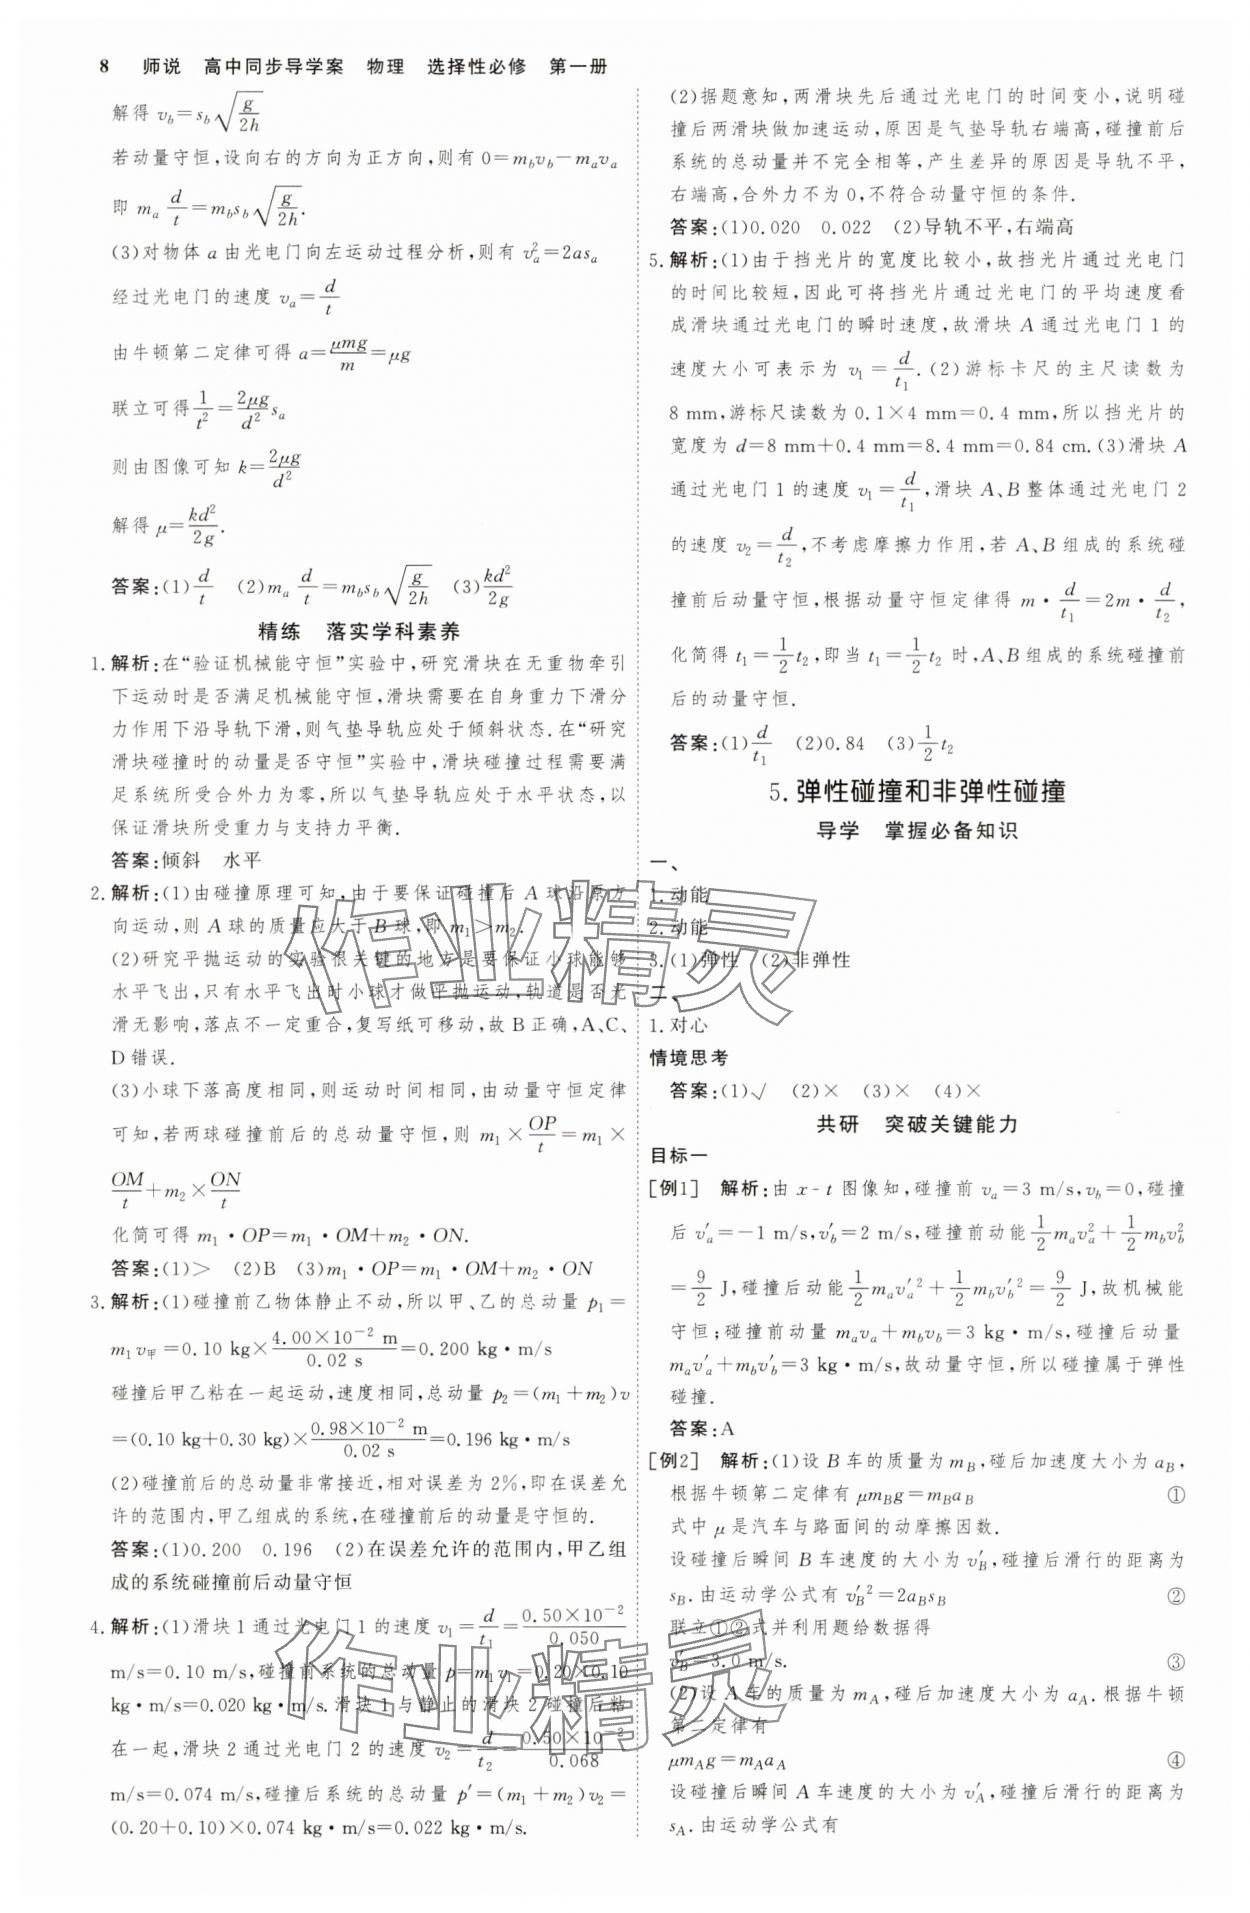 8 师说 高中同步导学案 物理 选择性必修 第一册
解得 v_b=s_b√(g/2h)
若动量守恒,设向右的方向为正方向,则有 0=m_bv_b-m_av_a
即 m_a d/t=m_bs_b√(g/2h).
(3)对物体 a 由光电门向左运动过程分析,则有 v_a²=2as_a
经过光电门的速度 v_a=d/t
由牛顿第二定律可得 a=μmg/m=μg
联立可得 1/t²=2μg/d² s_a
则由图像可知 k=2μg/d²
解得 μ=kd²/2g.
答案:(1)d/t (2)m_a d/t=m_bs_b√(g/2h) (3)kd²/2g
精练 落实学科素养
1.解析:在“验证机械能守恒”实验中,研究滑块在无重物牵引
下运动时是否满足机械能守恒,滑块需要在自身重力下滑分
力作用下沿导轨下滑,则气垫导轨应处于倾斜状态.在“研究
滑块碰撞时的动量是否守恒”实验中,滑块碰撞过程需要满
足系统所受合外力为零,所以气垫导轨应处于水平状态,以
保证滑块所受重力与支持力平衡.
答案:倾斜 水平
2.解析:(1)由碰撞原理可知,由于要保证碰撞后 A 球沿原方
向运动,则 A 球的质量应大于 B 球,即 m₁>m₂.
(2)研究平抛运动的实验很关键的地方是要保证小球能够
水平飞出,只有水平飞出时小球才做平抛运动,轨道是否光
滑无影响,落点不一定重合,复写纸可移动,故 B 正确,A、C、
D 错误.
(3)小球下落高度相同,则运动时间相同,由动量守恒定律
可知,若两球碰撞前后的总动量守恒,则 m₁×OP/t=m₁×
OM/t+m₂×ON/t
化简可得 m₁·OP=m₁·OM+m₂·ON.
答案:(1)> (2)B (3)m₁·OP=m₁·OM+m₂·ON
3.解析:(1)碰撞前乙物体静止不动,所以甲、乙的总动量 p₁=
m₁v甲=0.10 kg×4.00×10⁻² m/0.02 s=0.200 kg·m/s
碰撞后甲乙粘在一起运动,速度相同,总动量 p₂=(m₁+m₂)v
=(0.10 kg+0.30 kg)×0.98×10⁻² m/0.02 s=0.196 kg·m/s
(2)碰撞前后的总动量非常接近,相对误差为 2%,即在误差允
许的范围内,甲乙组成的系统,在碰撞前后的动量是守恒的.
答案:(1)0.200 0.196 (2)在误差允许的范围内,甲乙组
成的系统碰撞前后动量守恒
4.解析:(1)滑块 1 通过光电门 1 的速度 v₁=d/t₁=0.50×10⁻²/0.050
m/s=0.10 m/s,碰撞前系统的总动量 p=m₁v₁=0.20×0.10
kg·m/s=0.020 kg·m/s.滑块 1 与静止的滑块 2 碰撞后粘
在一起,滑块 2 通过光电门 2 的速度 v₂=d/t₂=0.50×10⁻²/0.068
m/s=0.074 m/s,碰撞后系统的总动量 p′=(m₁+m₂)v₂=
(0.20+0.10)×0.074 kg·m/s=0.022 kg·m/s.
(2)据题意知,两滑块先后通过光电门的时间变小,说明碰
撞后两滑块做加速运动,原因是气垫导轨右端高,碰撞前后
系统的总动量并不完全相等,产生差异的原因是导轨不平,
右端高,合外力不为 0,不符合动量守恒的条件.
答案:(1)0.020 0.022 (2)导轨不平,右端高
5.解析:(1)由于挡光片的宽度比较小,故挡光片通过光电门
的时间比较短,因此可将挡光片通过光电门的平均速度看
成滑块通过光电门的瞬时速度,故滑块 A 通过光电门 1 的
速度大小可表示为 v₁=d/t₁.(2)游标卡尺的主尺读数为
8 mm,游标尺读数为 0.1×4 mm=0.4 mm,所以挡光片的
宽度为 d=8 mm+0.4 mm=8.4 mm=0.84 cm.(3)滑块 A
通过光电门 1 的速度 v₁=d/t₁,滑块 A、B 整体通过光电门 2
的速度 v₂=d/t₂,不考虑摩擦力作用,若 A、B 组成的系统碰
撞前后动量守恒,根据动量守恒定律得 m·d/t₁=2m·d/t₂,
化简得 t₁=1/2 t₂,即当 t₁=1/2 t₂ 时,A、B 组成的系统碰撞前
后的动量守恒.
答案:(1)d/t₁ (2)0.84 (3)1/2 t₂
5.弹性碰撞和非弹性碰撞
导学 掌握必备知识
一、
1.动能
2.动能
3.(1)弹性 (2)非弹性
二、
1.对心
情境思考
答案:(1)√ (2)× (3)× (4)×
共研 突破关键能力
目标一
[例1] 解析:由 x-t 图像知,碰撞前 v_a=3 m/s,v_b=0,碰撞
后 v′_a=-1 m/s,v′_b=2 m/s,碰撞前动能 1/2 m_av_a²+1/2 m_bv_b²
=9/2 J,碰撞后动能 1/2 m_av′_a²+1/2 m_bv′_b²=9/2 J,故机械能
守恒;碰撞前动量 m_av_a+m_bv_b=3 kg·m/s,碰撞后动量
m_av′_a+m_bv′_b=3 kg·m/s,故动量守恒,所以碰撞属于弹性
碰撞.
答案:A
[例2] 解析:(1)设 B 车的质量为 m_B,碰后加速度大小为 a_B,
根据牛顿第二定律有 μm_Bg=m_Ba_B ①
式中 μ 是汽车与路面间的动摩擦因数.
设碰撞后瞬间 B 车速度的大小为 v′_B,碰撞后滑行的距离为
s_B.由运动学公式有 v′_B²=2a_Bs_B ②
联立①②式并利用题给数据得
v′_B=3.0 m/s. ③
(2)设 A 车的质量为 m_A,碰后加速度大小为 a_A.根据牛顿
第二定律有
μm_Ag=m_Aa_A ④
设碰撞后瞬间 A 车速度的大小为 v′_A,碰撞后滑行的距离为
s_A.由运动学公式有
作业精灵
作业精灵